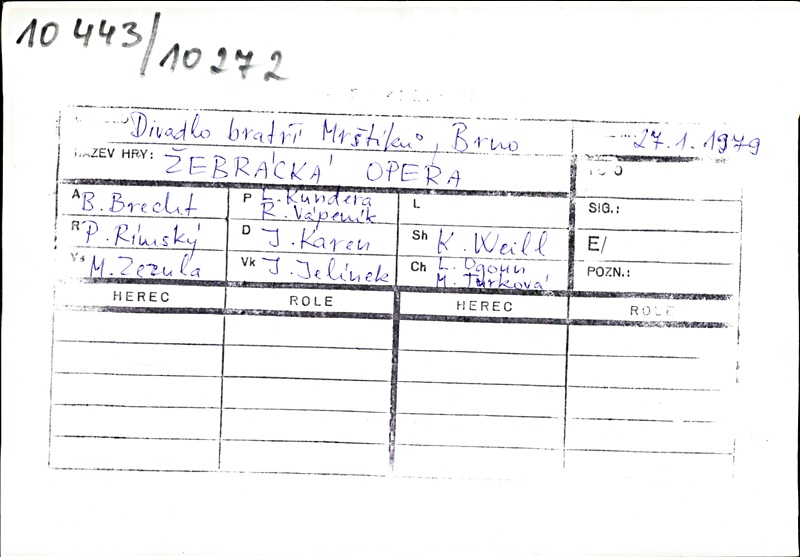 10 443/10 272
Divadlo bratří Mrštíků, Brno 27.1.1979
NÁZEV HRY: ŽEBRÁCKÁ OPERA
A B. Brecht P L. Kundera R. Vápeník L SIG.:
R P. Rímský D J. Karen Sh K. Weill E/
M. Zezula Vk J. Jelínek Ch L. Ogoun M. Turková POZN.:
HEREC ROLE HEREC ROLE